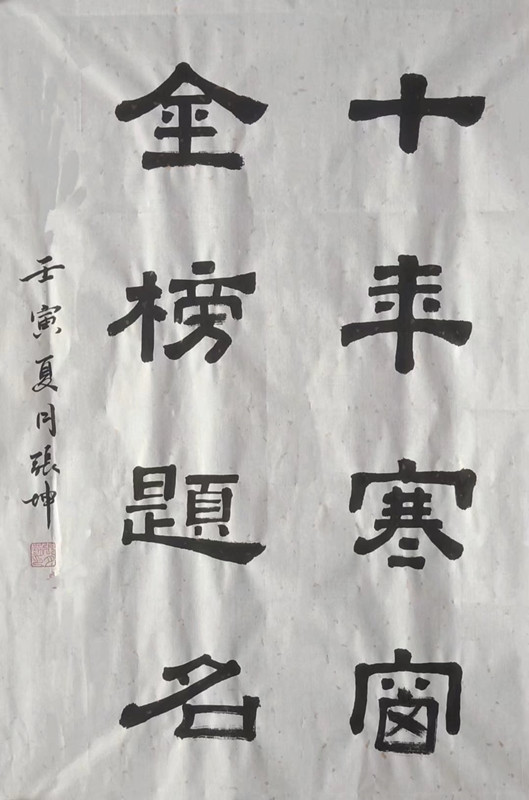 十年寒窗
金榜題名
壬寅夏月張坤